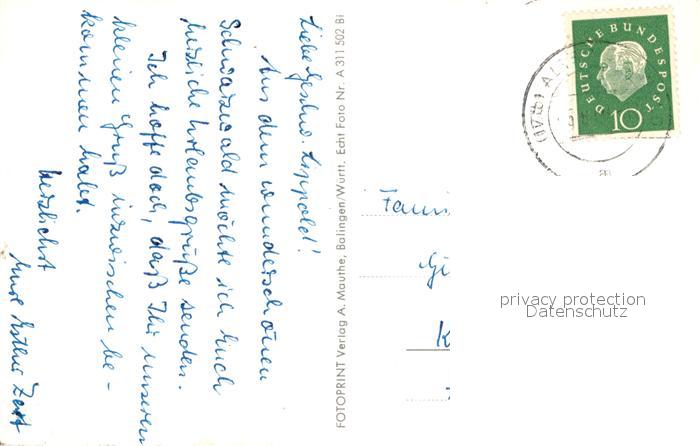 Liebe Geschw. Lippold!
Aus dem wunderschönen
Schwarzwald möchte ich Euch
herzliche Urlaubsgrüße senden.
Ich hoffe doch, daß Ihr unseren
kleinen Gruß inzwischen be-
kommen habt.
Herzlichst
Eure Esther
FOTOPRINT Verlag A. Mauthe, Balingen/Württ. Echt Foto Nr. A 311 502 Bi
DEUTSCHE BUNDESPOST
10
(17b)
Fami
K
privacy protection
Datenschutz